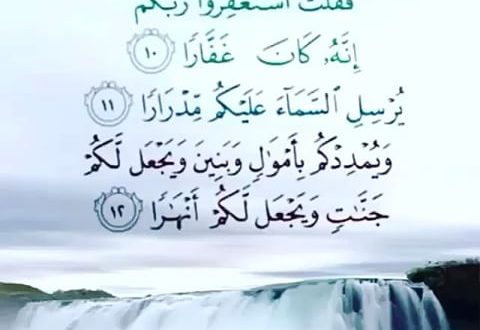 فَقُلْتُ ٱسْتَغْفِرُوا۟ رَبَّكُمْ
إِنَّهُۥ كَانَ غَفَّارًا ١٠
يُرْسِلِ ٱلسَّمَآءَ عَلَيْكُم مِّدْرَارًا ١١
وَيُمْدِدْكُم بِأَمْوَٰلٍ وَبَنِينَ وَيَجْعَل لَّكُمْ
جَنَّـٰتٍ وَيَجْعَل لَّكُمْ أَنْهَـٰرًا ١٢